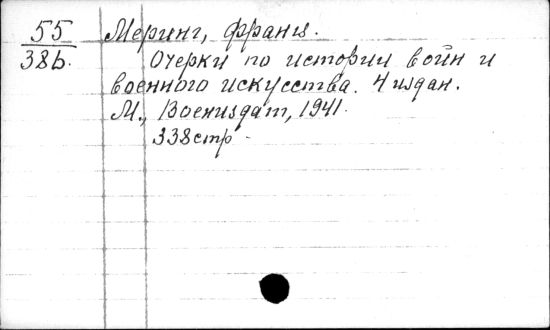 55 Меринг, Франц.
38b. Очерки по истории войн и
военного искусства. 4 издан.
М., Воениздат, 1941.
338 стр.